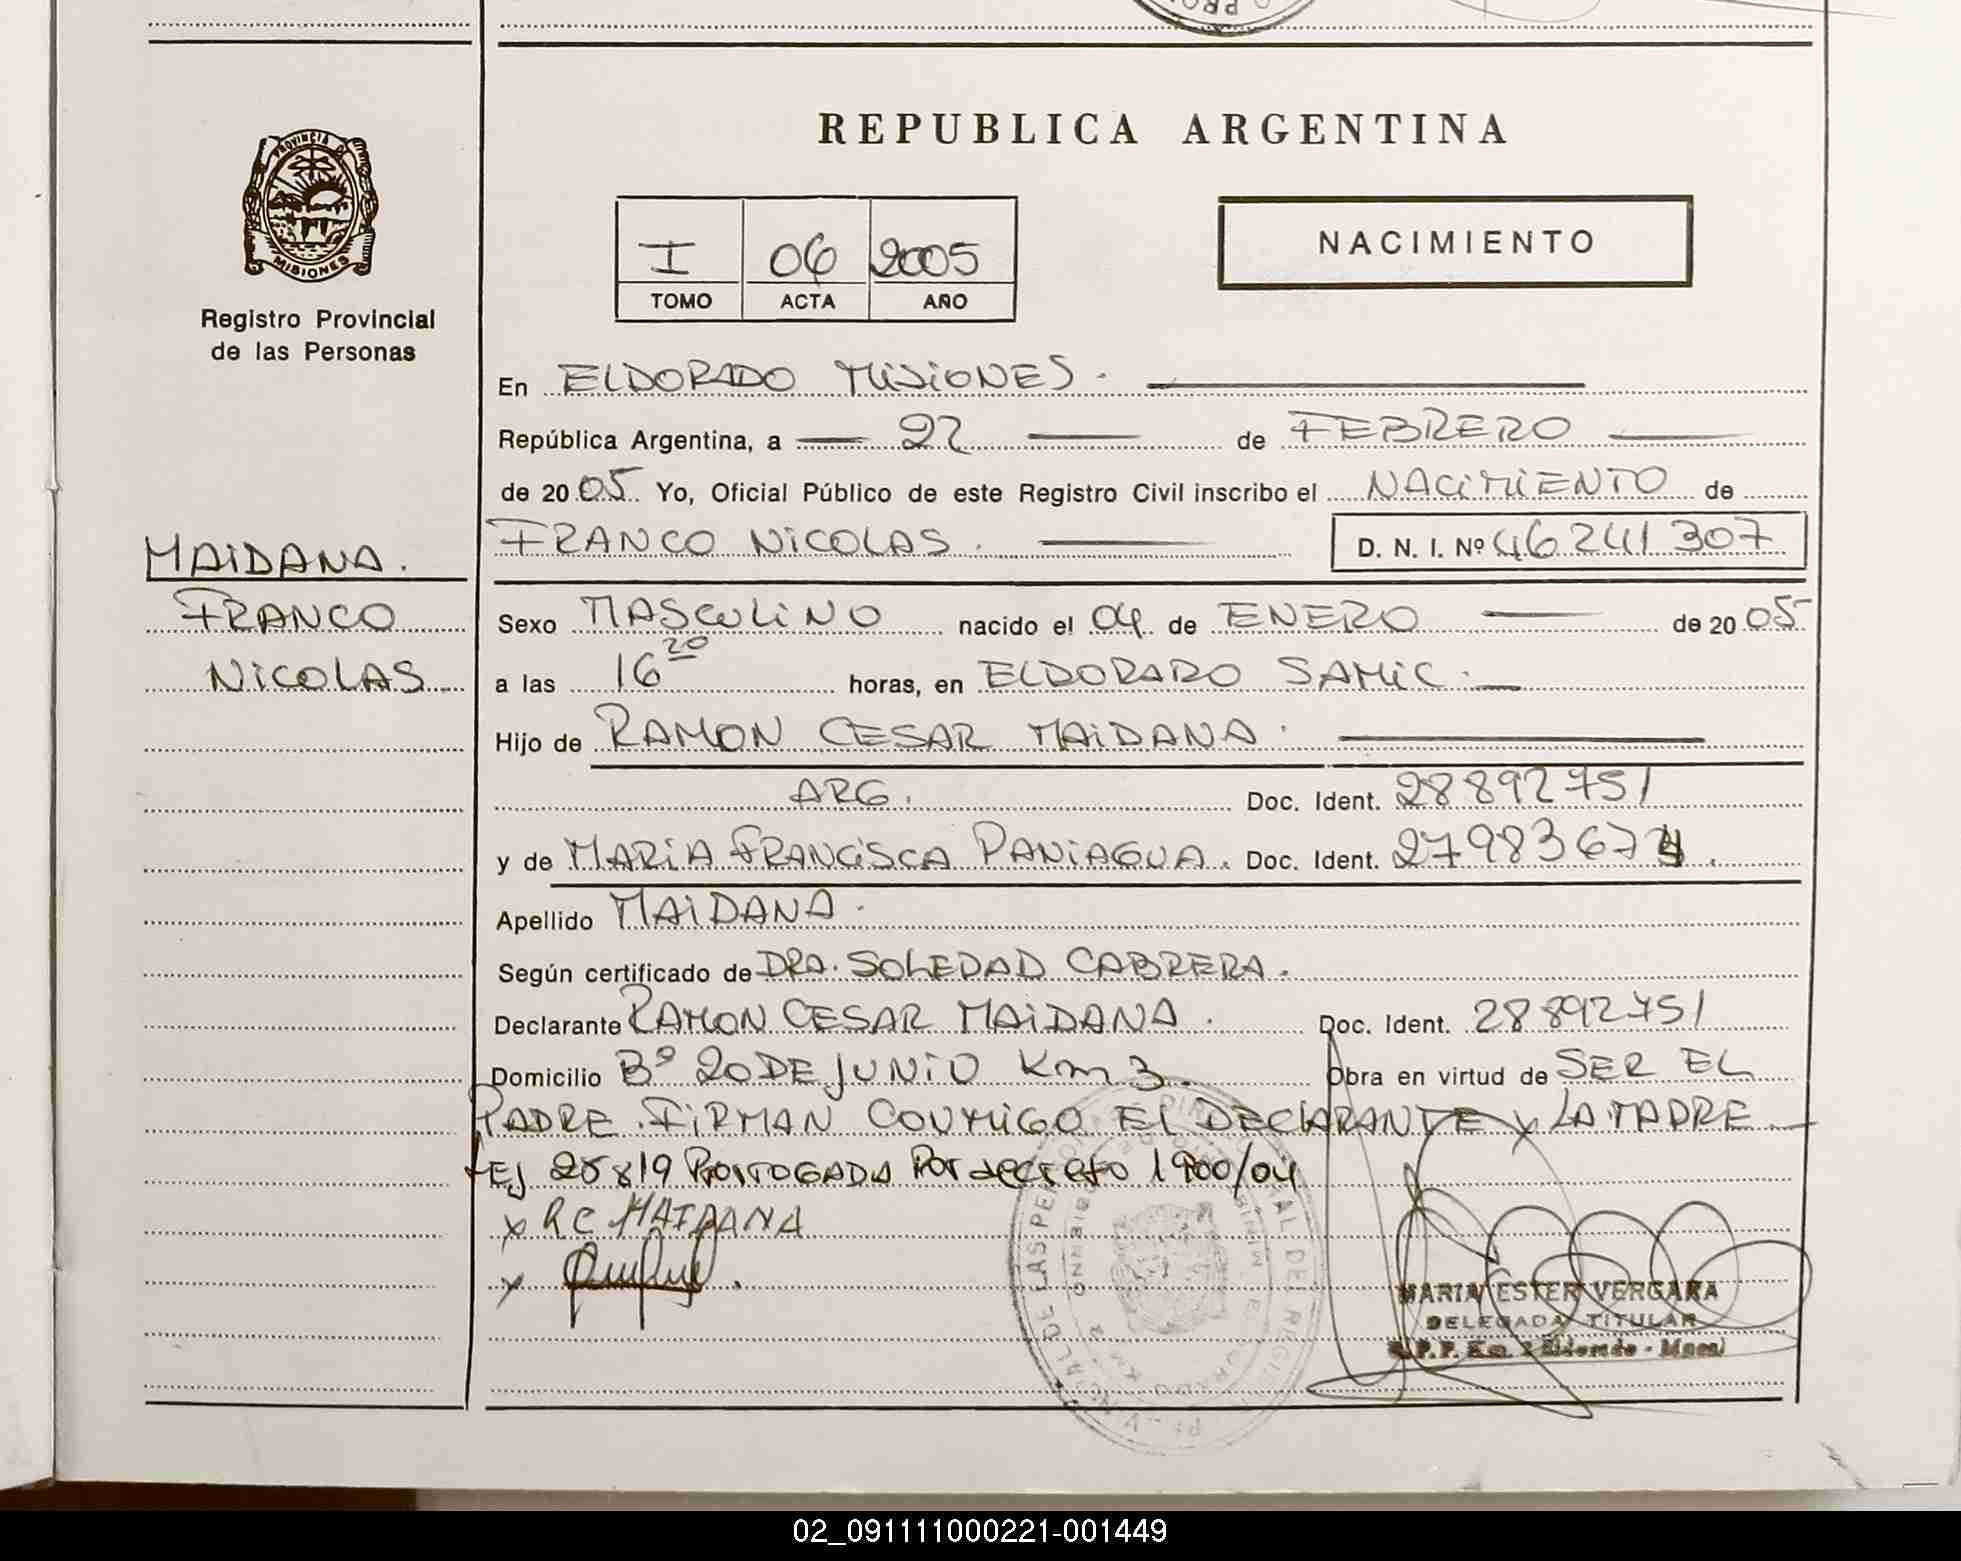 REPUBLICA ARGENTINA
PROVINCIA DE
MISIONES
Registro Provincial
de las Personas
I 06 2005
TOMO ACTA AÑO
NACIMIENTO
En ELDORADO MISIONES.
República Argentina, a 22 de FEBRERO
de 2005 Yo, Oficial Público de este Registro Civil inscribo el NACIMIENTO de
FRANCO NICOLAS. D. N. I. Nº 46241307
MAIDANA.
FRANCO
NICOLAS
Sexo MASCULINO nacido el 04 de ENERO de 2005
a las 16 20 horas, en ELDORADO SAMIC.
Hijo de RAMON CESAR MAIDANA.
ARG. Doc. Ident. 28892751
y de MARIA FRANCISCA PANIAGUA. Doc. Ident. 27983674.
Apellido MAIDANA.
Según certificado de DRA. SOLEDAD CABRERA.
Declarante RAMON CESAR MAIDANA. Doc. Ident. 28892751
Domicilio Bº 20 DE JUNIO Km 3. Obra en virtud de SER EL
PADRE. FIRMAN CONMIGO EL DECLARANTE Y LA MADRE
LEJ 25819 PRORROGADA Por decreto 1900/04
x RC MAIDANA
x
MARIA ESTER VERGARA
DELEGADA TITULAR
R.P.P. Km. 2 Eldorado - Mnes
02_091111000221-001449